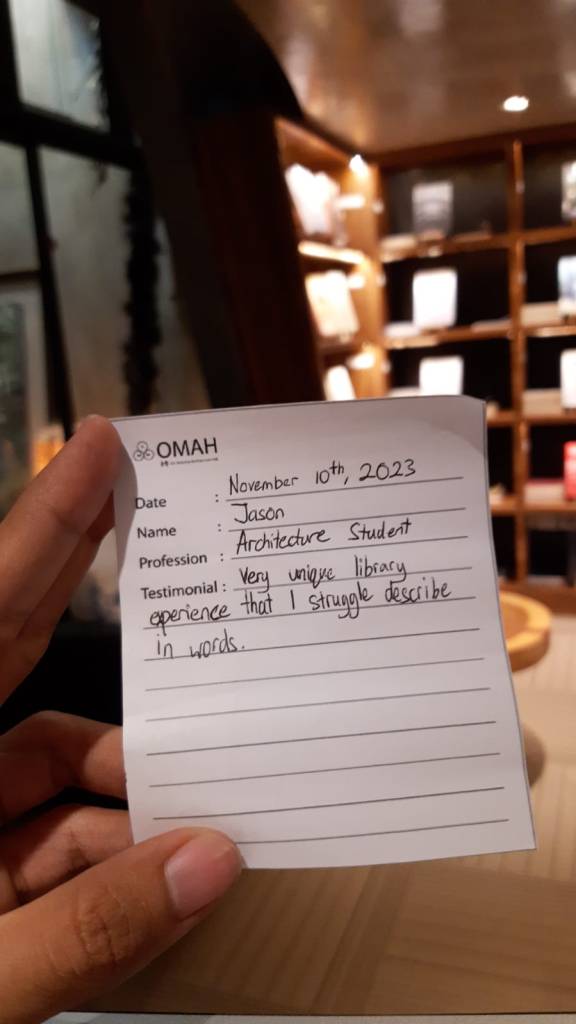 OMAH
Date : November 10th, 2023
Name : Jason
Profession : Architecture Student
Testimonial : Very unique library
experience that I struggle describe
in words.